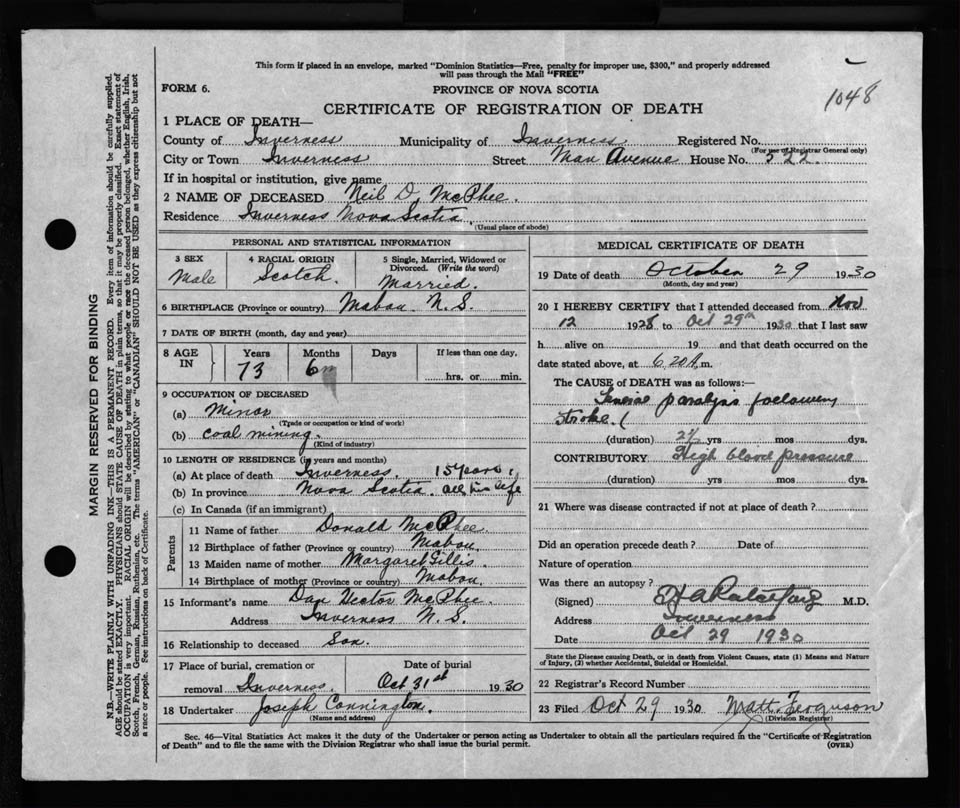 This form if placed in an envelope, marked "Dominion Statistics—Free, penalty for improper use, $300," and properly addressed
will pass through the Mail "FREE"
FORM 6.
PROVINCE OF NOVA SCOTIA
1048
CERTIFICATE OF REGISTRATION OF DEATH
1 PLACE OF DEATH—
County of Inverness Municipality of Inverness Registered No.
(For use of Registrar General only)
City or Town Inverness Street Avenue House No. 522.
If in hospital or institution, give name
2 NAME OF DECEASED Neil D. McPhee.
Residence Inverness Nova Scotia.
(Usual place of abode)
PERSONAL AND STATISTICAL INFORMATION
3 SEX
Male
4 RACIAL ORIGIN
Scotch.
5 Single, Married, Widowed or
Divorced. (Write the word)
Married.
6 BIRTHPLACE (Province or country) Mabou N.S.
7 DATE OF BIRTH (month, day and year)
8 AGE IN
Years 73
Months 6
Days
If less than one day,
hrs. or min.
9 OCCUPATION OF DECEASED
(a) Minor
(Trade or occupation or kind of work)
(b) coal mining.
(Kind of industry)
10 LENGTH OF RESIDENCE (in years and months)
(a) At place of death Inverness. 15 years
(b) In province Nova Scotia. all his life
(c) In Canada (if an immigrant)
Parents
11 Name of father Donald McPhee
12 Birthplace of father (Province or country) Mabou.
13 Maiden name of mother Margaret Gillis
14 Birthplace of mother (Province or country) Mabou.
15 Informant's name Dan Hector McPhee.
Address Inverness N.S.
16 Relationship to deceased Son.
17 Place of burial, cremation or
removal Inverness.
Date of burial
Oct 31st 1930
18 Undertaker Joseph Connington.
(Name and address)
MEDICAL CERTIFICATE OF DEATH
19 Date of death October 29 1930
(Month, day and year)
20 I HEREBY CERTIFY that I attended deceased from Nov
12 1928 to Oct 29th 1930 that I last saw
h alive on 19 and that death occurred on the
date stated above, at 6.20 A.m.
The CAUSE of DEATH was as follows:—
General paralysis following
stroke.
(duration) 2½ yrs mos dys.
CONTRIBUTORY High blood pressure
(duration) yrs mos dys.
21 Where was disease contracted if not at place of death?
Did an operation precede death? Date of
Nature of operation
Was there an autopsy?
(Signed) M.D.
Address Inverness
Date Oct 29 1930
State the Disease causing Death, or in death from Violent Causes, state (1) Means and Nature
of Injury, (2) whether Accidental, Suicidal or Homicidal.
22 Registrar's Record Number
23 Filed Oct 29 1930 Matt. Ferguson
(Division Registrar)
Sec. 46—Vital Statistics Act makes it the duty of the Undertaker or person acting as Undertaker to obtain all the particulars required in the "Certificate of Registration
of Death" and to file the same with the Division Registrar who shall issue the burial permit.
(OVER)
MARGIN RESERVED FOR BINDING
N.B.—WRITE PLAINLY WITH UNFADING INK—THIS IS A PERMANENT RECORD. Every item of information should be carefully supplied.
AGE should be stated EXACTLY. PHYSICIANS should STATE CAUSE OF DEATH in plain terms, so that it may be properly classified. Exact statement of
OCCUPATION is very important. RACIAL ORIGIN will be described by stating to what people or race the deceased person belonged, whether English, Irish,
Scotch, French, German, Russian, Ruthenian, etc. The terms "AMERICAN" or "CANADIAN" SHOULD NOT BE USED as they express citizenship but not
a race or people. See instructions on back of Certificate.